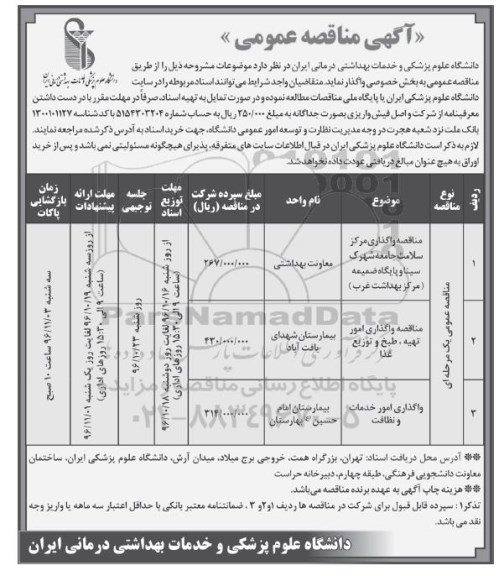 «آگهی مناقصه عمومی»
دانشگاه علوم پزشکی و خدمات بهداشتی درمانی ایران
دانشگاه علوم پزشکی و خدمات بهداشتی درمانی ایران در نظر دارد موضوعات مشروحه ذیل را از طریق
مناقصه عمومی به بخش خصوصی واگذار نماید. متقاضیان واجد شرایط می‌توانند اسناد مربوطه را در سایت
دانشگاه علوم پزشکی ایران یا پایگاه ملی مناقصات مطالعه نموده و در صورت تمایل به تهیه اسناد، صرفاً در مهلت مقرر با در دست داشتن
معرفینامه از شرکت و اصل فیش واریزی بصورت جداگانه به مبلغ ۲۵۰/۰۰۰ ریال به حساب شماره ۵۱۵۴۳۰۳۲۰۴ با کد شناسه ۱۳۰۰۱۰۱۱۲۷
بانک ملت نزد شعبه هجرت در وجه مدیریت نظارت و توسعه امور عمومی دانشگاه، جهت خرید اسناد به آدرس ذکر شده مراجعه نمایند.
لازم به ذکر است دانشگاه علوم پزشکی ایران در قبال اطلاعات سایت های متفرقه، پذیرای هیچگونه مسئولیتی نمی باشد و پس از خرید
اوراق به هیچ عنوان مبالغ دریافتی عودت داده نخواهد شد.
ردیف
نوع مناقصه
موضوع
نام واحد
مبلغ سپرده شرکت در مناقصه (ریال)
مهلت توزیع اسناد
جلسه توجیهی
مهلت ارائه پیشنهادات
زمان بازگشایی پاکات
مناقصه عمومی یک مرحله ای
۱
مناقصه واگذاری مرکز
سلامت جامعه شهرک
سینا و پایگاه ضمیمه
(مرکز بهداشت غرب)
معاونت بهداشتی
۲۶۷/۰۰۰/۰۰۰
۲
مناقصه واگذاری امور
تهیه ، طبخ و توزیع
غذا
بیمارستان شهدای
یافت آباد
۴۳۰/۰۰۰/۰۰۰
۳
واگذاری امور خدمات
و نظافت
بیمارستان امام
حسین (ع) بهارستان
۳۱۴/۰۰۰/۰۰۰
از روز شنبه ۹۶/۱۰/۱۶ لغایت روز دوشنبه ۹۶/۱۰/۱۸
(ساعت ۹ الی ۱۵:۳۰ روزهای اداری)
روز شنبه ۹۶/۱۰/۲۳
از روز سه شنبه ۹۶/۱۰/۱۹ لغایت روز یک شنبه ۹۶/۱۱/۰۱
(ساعت ۹ الی ۱۵:۳۰ روزهای اداری)
سه شنبه ۹۶/۱۱/۰۳ ساعت ۱۰ صبح
ParsNamadData
پایگاه اطلاع رسانی مناقصه و مزایده
۰۲۱-۸۸۳۴۹۶۷۰-۵
※※ آدرس محل دریافت اسناد: تهران، بزرگراه همت، خروجی برج میلاد، میدان آرش، دانشگاه علوم پزشکی ایران، ساختمان
معاونت دانشجویی فرهنگی، طبقه چهارم، دبیرخانه حراست
※※ هزینه چاپ آگهی به عهده برنده مناقصه می‌باشد.
تذکر۱ : سپرده قابل قبول برای شرکت در مناقصه ها ردیف ۱و۲و ۳ ، ضمانتنامه معتبر بانکی با حداقل اعتبار سه ماهه یا واریز وجه
نقد می باشد.
دانشگاه علوم پزشکی و خدمات بهداشتی درمانی ایران